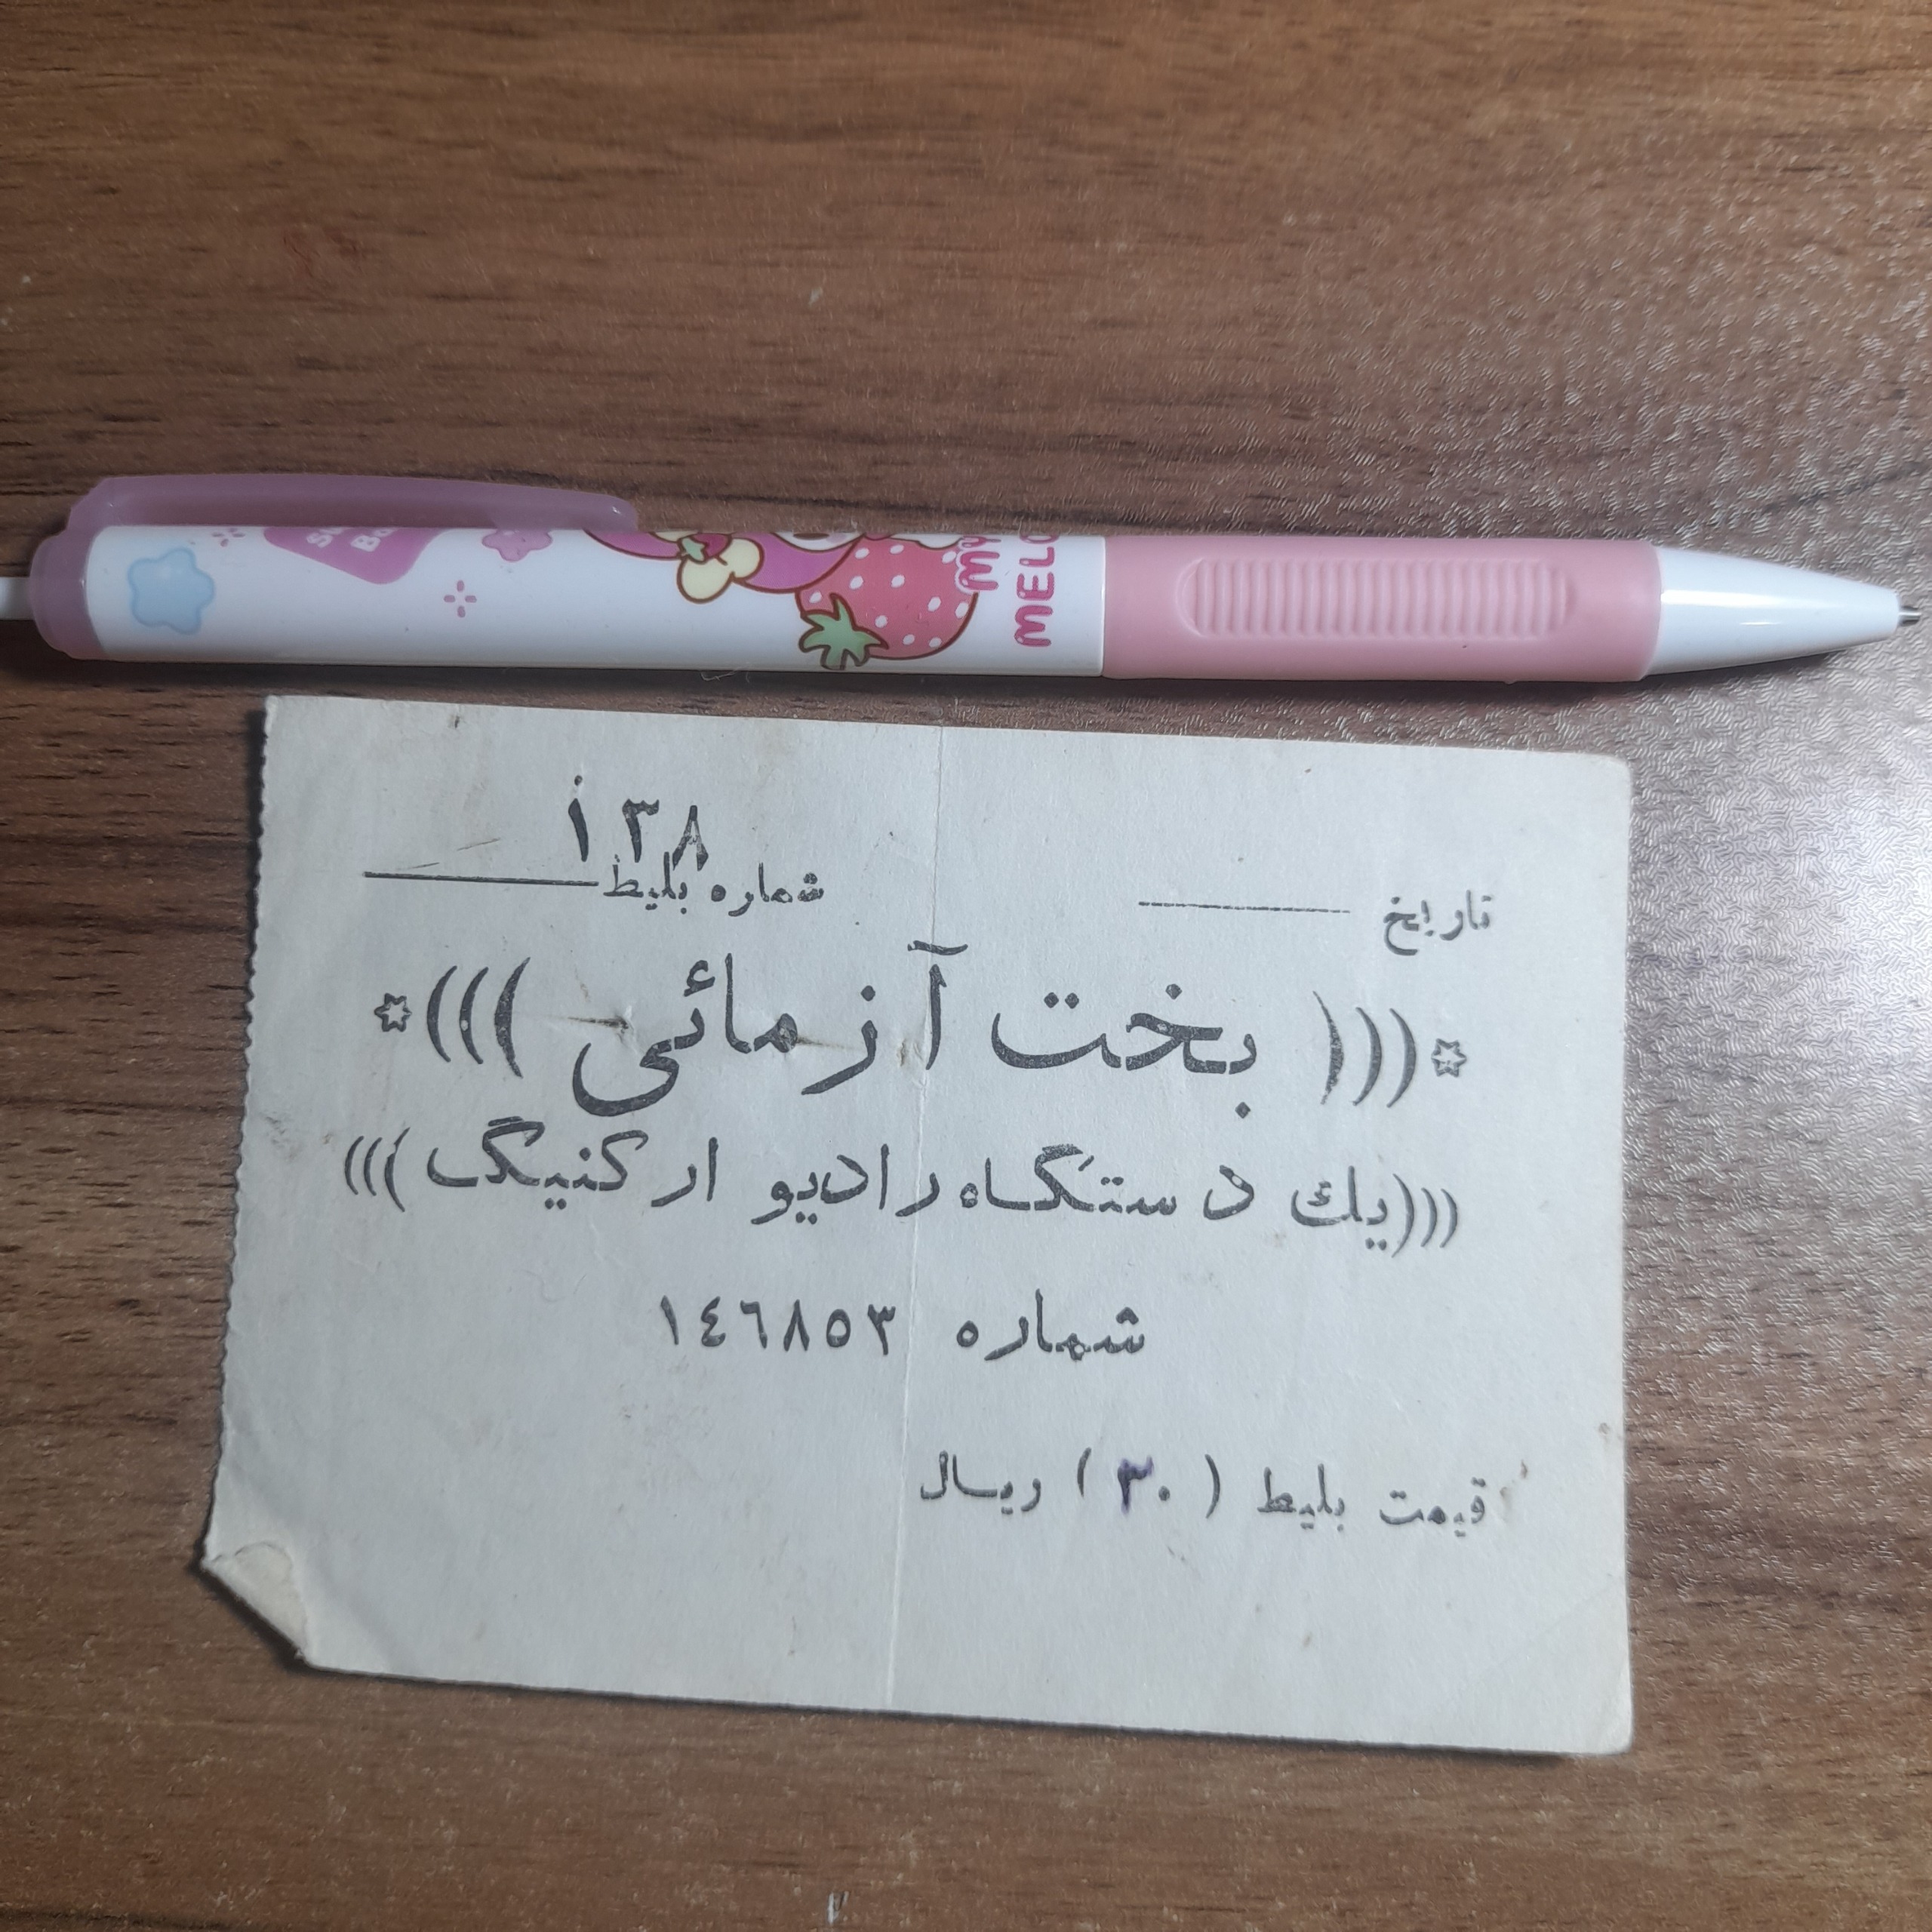 MY
MELO
۱۳۸
تاریخ
شماره بلیط
*((( بخت آزمائی )))*
(((یك دستگاه رادیو ارکنیگ)))
شماره ١٤٦٨٥٣
قیمت بلیط ( ۳۰ ) ریال